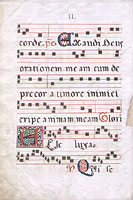 II.
corde. ps. Exaudi Deus
orationem meam cum de
precor a timore inimici
eripe animam meam Glori
Alleluya.